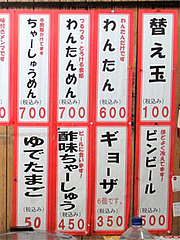 替え玉
(税込み)
100
わんたんだけです
わんたん
(税込み)
600
つるつる・とろける食感
わんたんめん
(税込み)
700
ちゃーしゅうめん
(税込み)
700
ビンビール
(税込み)
00
ギョーザ
6個です。
(税込み)
350
ビールにあいます!
酢味ちゃーしゅう
(税込み)
450
ゆでたまご
(税込み)
50